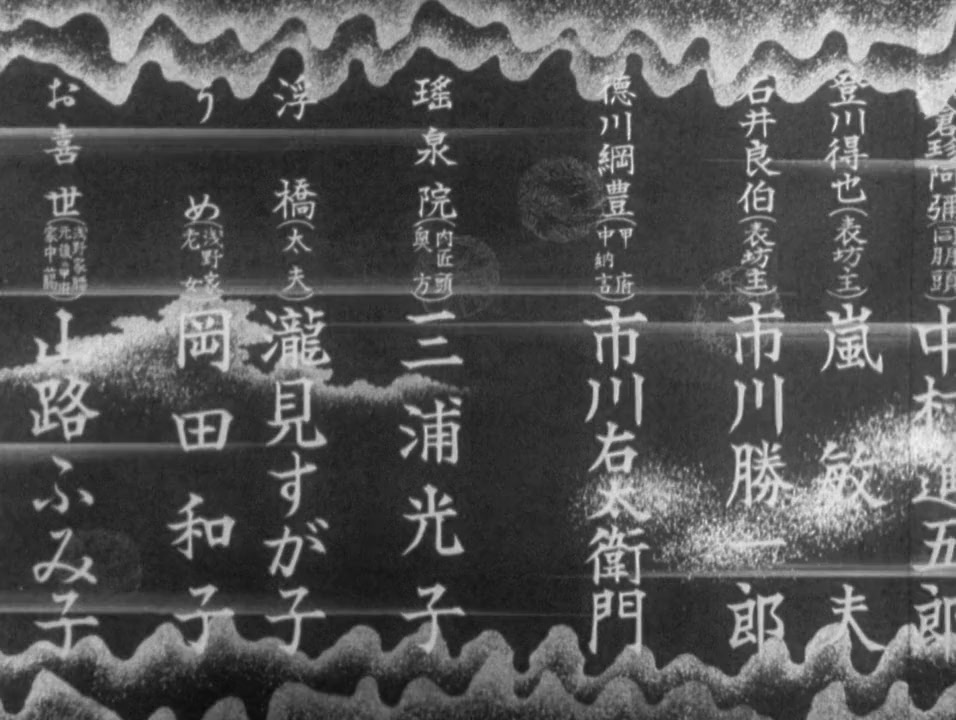 倉珍阿彌（同朋頭）中村進五郎
登川得也（表坊主）嵐敏夫
石井良伯（表坊主）市川勝一郎
徳川綱豊（甲府中納言）市川右太衛門
瑤泉院（内匠頭奥方）三浦光子
浮橋（太夫）瀧見すが子
うめ（浅野家老女）岡田和子
お喜世 山路ふみ子